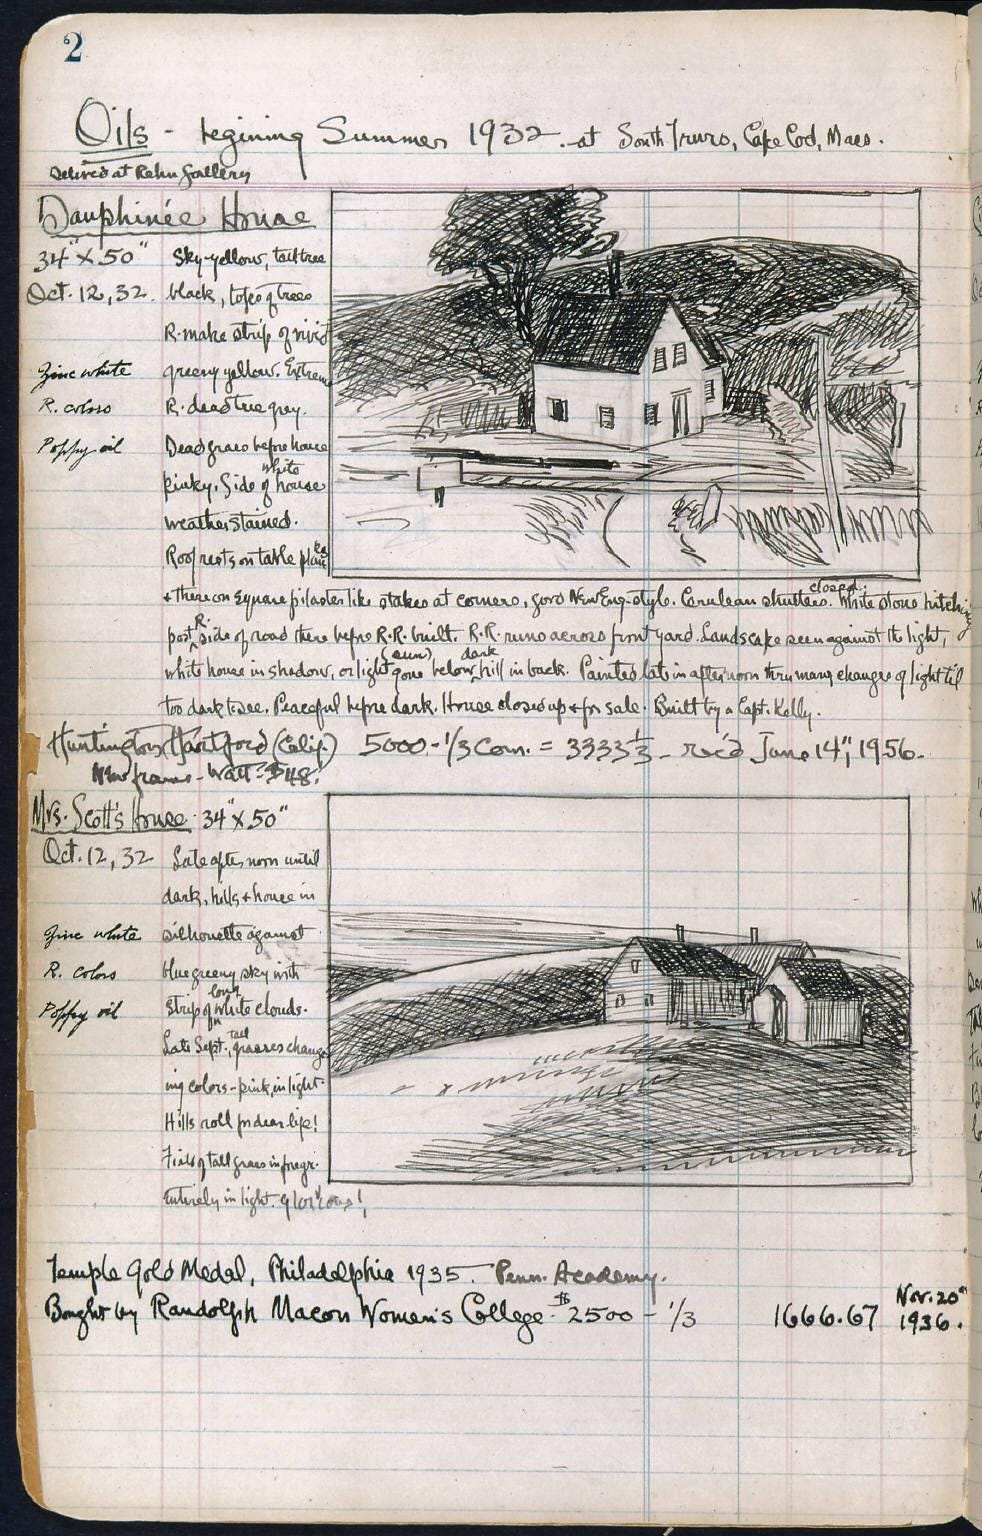 2
Oils - begining Summer 1932 - at South Truro, Cape Cod, Mass.
Delived at Rehn Gallery
Dauphinée House
34" x 50" Sky-yellow, tall tree
Oct. 12, 32. black, tops of trees
R. make strip of vivid
Zinc white greeny yellow. Extreme
R. colors R. dead tree grey.
Poppy oil Dead grass before house
pinky. Side of white house
weatherstained.
Roof rests on table plan
& thereon square pilaster like stakes at corners, good New Eng. style. Cerulean shutters closed. White stone hitching
post R. side of road there before R.R. built. R.R. runs across front yard. Landscape seen against the light,
white house in shadow, or light (sun) gone below dark hill in back. Painted late in afternoon thru many changes of light til
too dark to see. Peaceful before dark. House closed up & for sale. Built by a Capt. Kelly.
Huntington Hartford (Calif.) 5000 - 1/3 Com. = 3333 1/3 - rec'd June 14", 1956.
New frame - Watt - $48.
Mrs. Scott's House 34" x 50"
Oct. 12, 32 Late after noon until
dark, hills & house in
Zinc white silhouette against
R. colors blue greeny sky with
Poppy oil strip of long white clouds.
Late Sept., tall grasses chang
ing colors - pink, in light.
Hills roll for dear life!
Field of tall grass in foregr.
entirely in light. glorious!
Temple Gold Medal, Philadelphia 1935. Penn. Academy.
Bought by Randolph Macon Women's College. $2500 - 1/3 1666.67 Nov. 20" 1936.